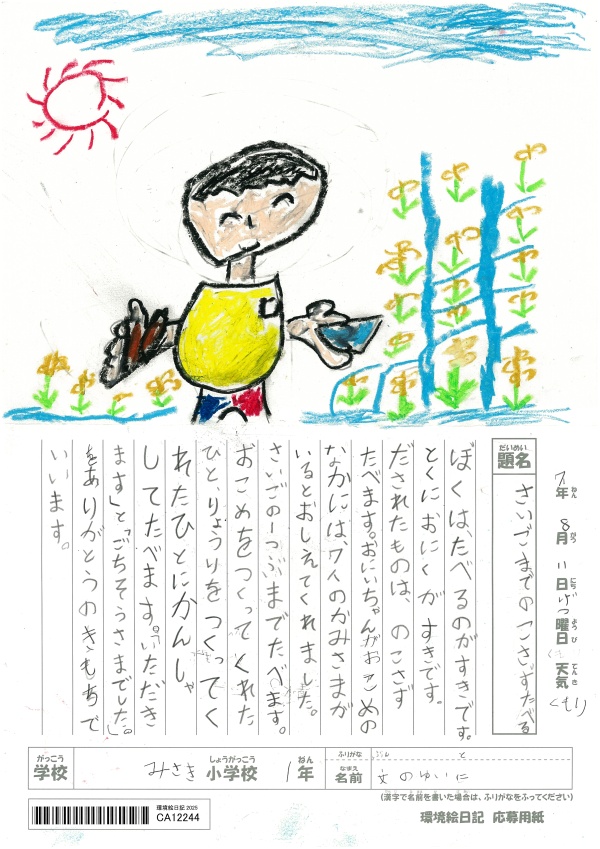 7年 8月 11日 げつ曜日 天気 くもり
ねん がつ にち ようび てんき
だいめい
題名 さいごまでのこさずたべる
ぼくは、たべるのがすきです。
とくにおにくがすきです。
だされたものは、のこさず
たべます。おにいちゃんがおこめの
なかには7人のかみさまが
いるとおしえてくれました。
さいごの一つぶまでたべます。
おこめをつくってくれた
ひと、りょうりをつくってく
れたひとにかんしゃ
してたべます。「いただき
ます」と「ごちそうさまでした。」
をありがとうのきもちで
いいます。
がっこう しょうがっこう ねん ふりがな
学校 みさき 小学校 1年 なまえ 名前 文のゆいに
(漢字で名前を書いた場合は、ふりがなをふってください)
環境絵日記 2025
CA12244
環境絵日記 応募用紙